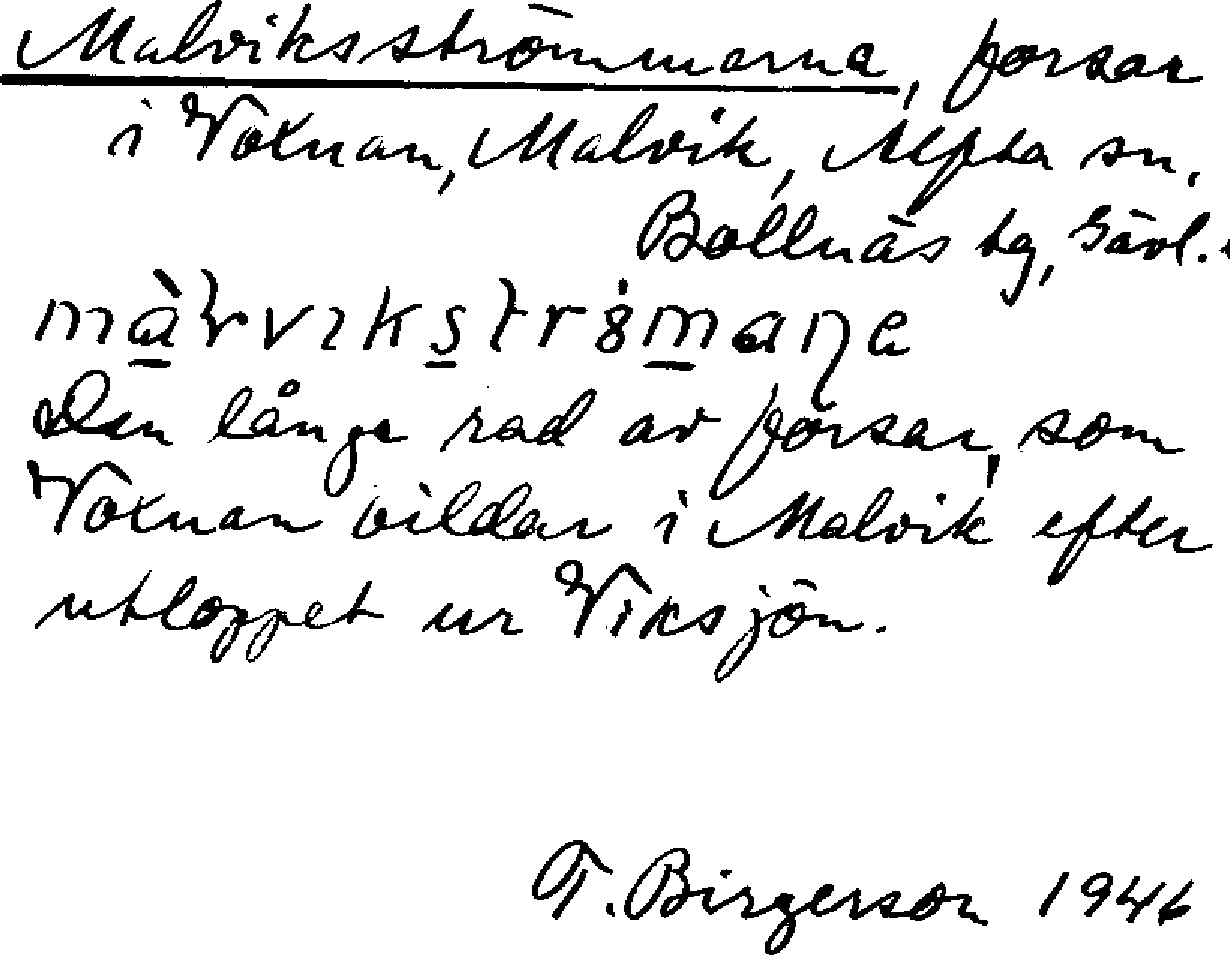 Malviksströmmarna, forsar
i Voxnan, Malvik, Alfta sn.
Bollnäs tg, Gävl.
Den långa rad av forsar, som
Voxnan bildar i Malvik efter
utloppet ur Viksjön.
T. Birgerson 1946